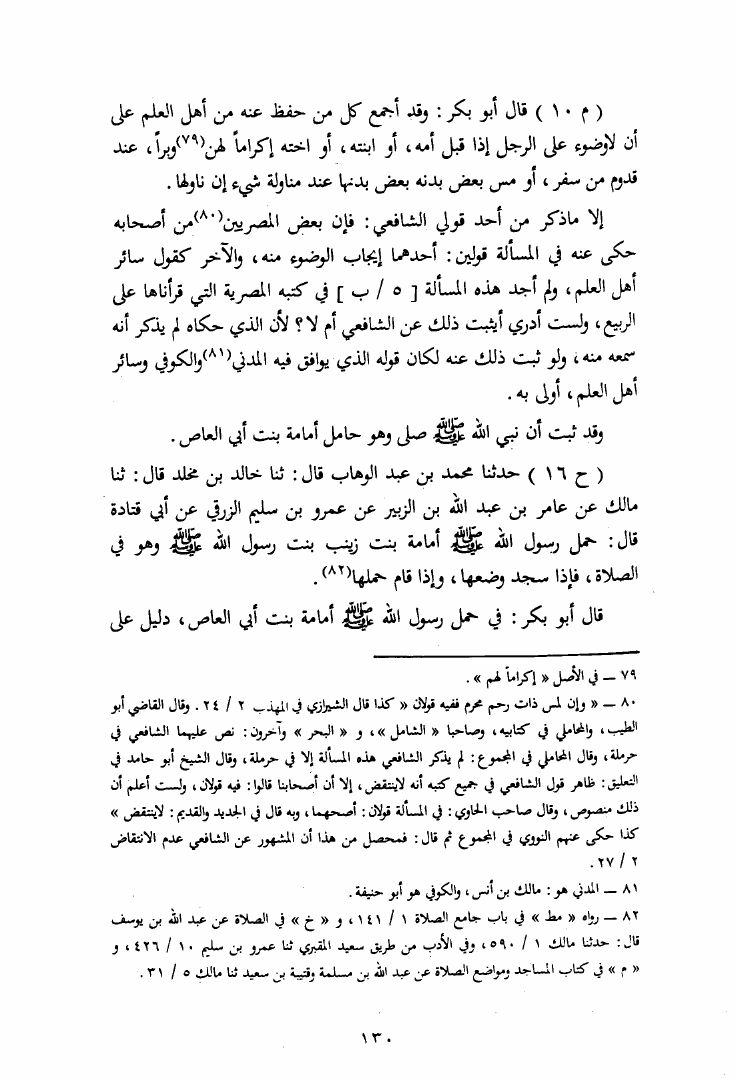 ( م ١٠ ) قال أبو بكر : وقد أجمع كل من حفظ عنه من أهل العلم على
أن لاوضوء على الرجل إذا قبل أمه ، أو ابنته ، أو اخته إكراماً لهن(٧٩)وبراً ، عند
قدوم من سفر ، أو مس بعض بدنه بعض بدنها عند مناولة شيء إن ناولها .
إلا ماذكر من أحد قولي الشافعي : فإن بعض المصريين(٨٠)من أصحابه
حكى عنه في المسألة قولين : أحدهما إيجاب الوضوء منه ، والآخر كقول سائر
أهل العلم ، ولم أجد هذه المسألة [ ٥ / ب ] في كتبه المصرية التي قرأناها على
الربيع ، ولست أدري أيثبت ذلك عن الشافعي أم لا ؟ لأن الذي حكاه لم يذكر أنه
سمعه منه ، ولو ثبت ذلك عنه لكان قوله الذي يوافق فيه المدني(٨١)والكوفي وسائر
أهل العلم ، أولى به .
وقد ثبت أن نبي الله ﷺ صلى وهو حامل أمامة بنت أبي العاص .
( ح ١٦ ) حدثنا محمد بن عبد الوهاب قال : ثنا خالد بن مخلد قال : ثنا
مالك عن عامر بن عبد الله بن الزبير عن عمرو بن سليم الزرقي عن أبي قتادة
قال : حمل رسول الله ﷺ أمامة بنت زينب بنت رسول الله ﷺ وهو في
الصلاة ، فإذا سجد وضعها ، وإذا قام حملها(٨٢) .
قال أبو بكر : في حمل رسول الله ﷺ أمامة بنت أبي العاص ، دليل على
٧٩ — في الأصل « إكراماً لهم » .
٨٠ — « وإن لمس ذات رحم محرم ففيه قولان » كذا قال الشيرازي في المهذب ٢ / ٢٤ . وقال القاضي أبو
الطيب ، والمحاملي في كتابيه ، وصاحبا « الشامل » ، و « البحر » وآخرون : نص عليهما الشافعي في
حرملة ، وقال المحاملي في المجموع : لم يذكر الشافعي هذه المسألة إلا في حرملة ، وقال الشيخ أبو حامد في
التعليق : ظاهر قول الشافعي في جميع كتبه أنه لاينتقض ، إلا أن أصحابنا قالوا : فيه قولان ، ولست أعلم أن
ذلك منصوص ، وقال صاحب الحاوي : في المسألة قولان : أصحهما ، وبه قال في الجديد والقديم : لاينتقض »
كذا حكى عنهم النووي في المجموع ثم قال : فمحصل من هذا أن المشهور عن الشافعي عدم الانتقاض
٢ / ٢٧ .
٨١ — المدني هو : مالك بن أنس ، والكوفي هو أبو حنيفة .
٨٢ — رواه « مط » في باب جامع الصلاة ١ / ١٤١ ، و « خ » في الصلاة عن عبد الله بن يوسف
قال : حدثنا مالك ١ / ٥٩٠ ، وفي الأدب من طريق سعيد المقبري ثنا عمرو بن سليم ١٠ / ٤٢٦ ، و
« م » في كتاب المساجد ومواضع الصلاة عن عبد الله بن مسلمة وقتيبة بن سعيد ثنا مالك ٥ / ٣١ .
١٣٠